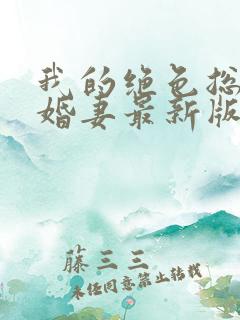 我的绝色总
婚妻最新版
藤三三
未经同意禁止转载